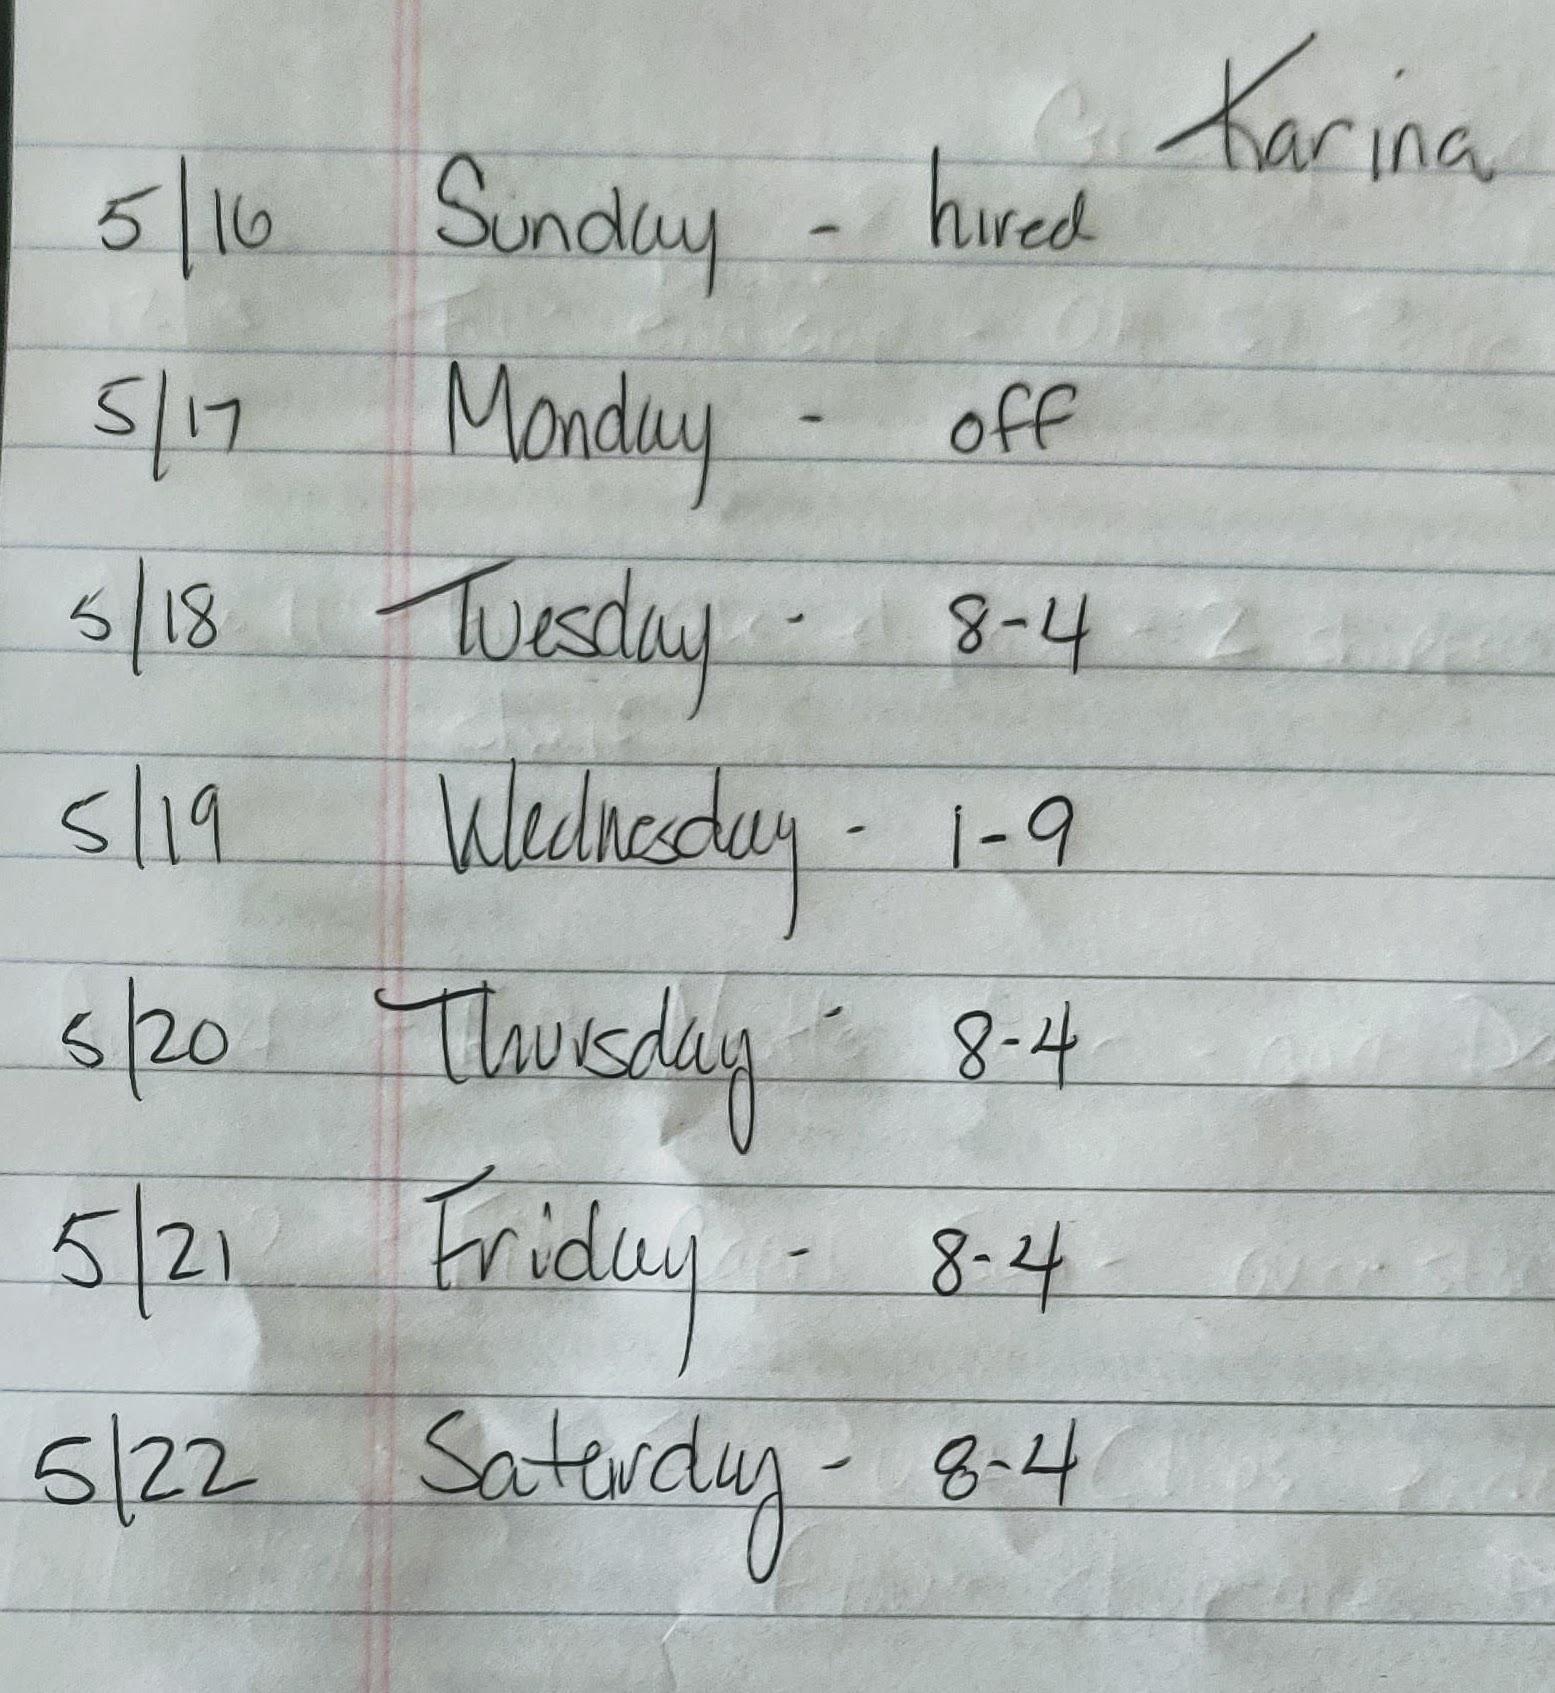 Karina
5/16 Sunday - hired
5/17 Monday - off
5/18 Tuesday - 8-4
5/19 Wednesday - 1-9
5/20 Thursday - 8-4
5/21 Friday - 8-4
5/22 Saterday - 8-4